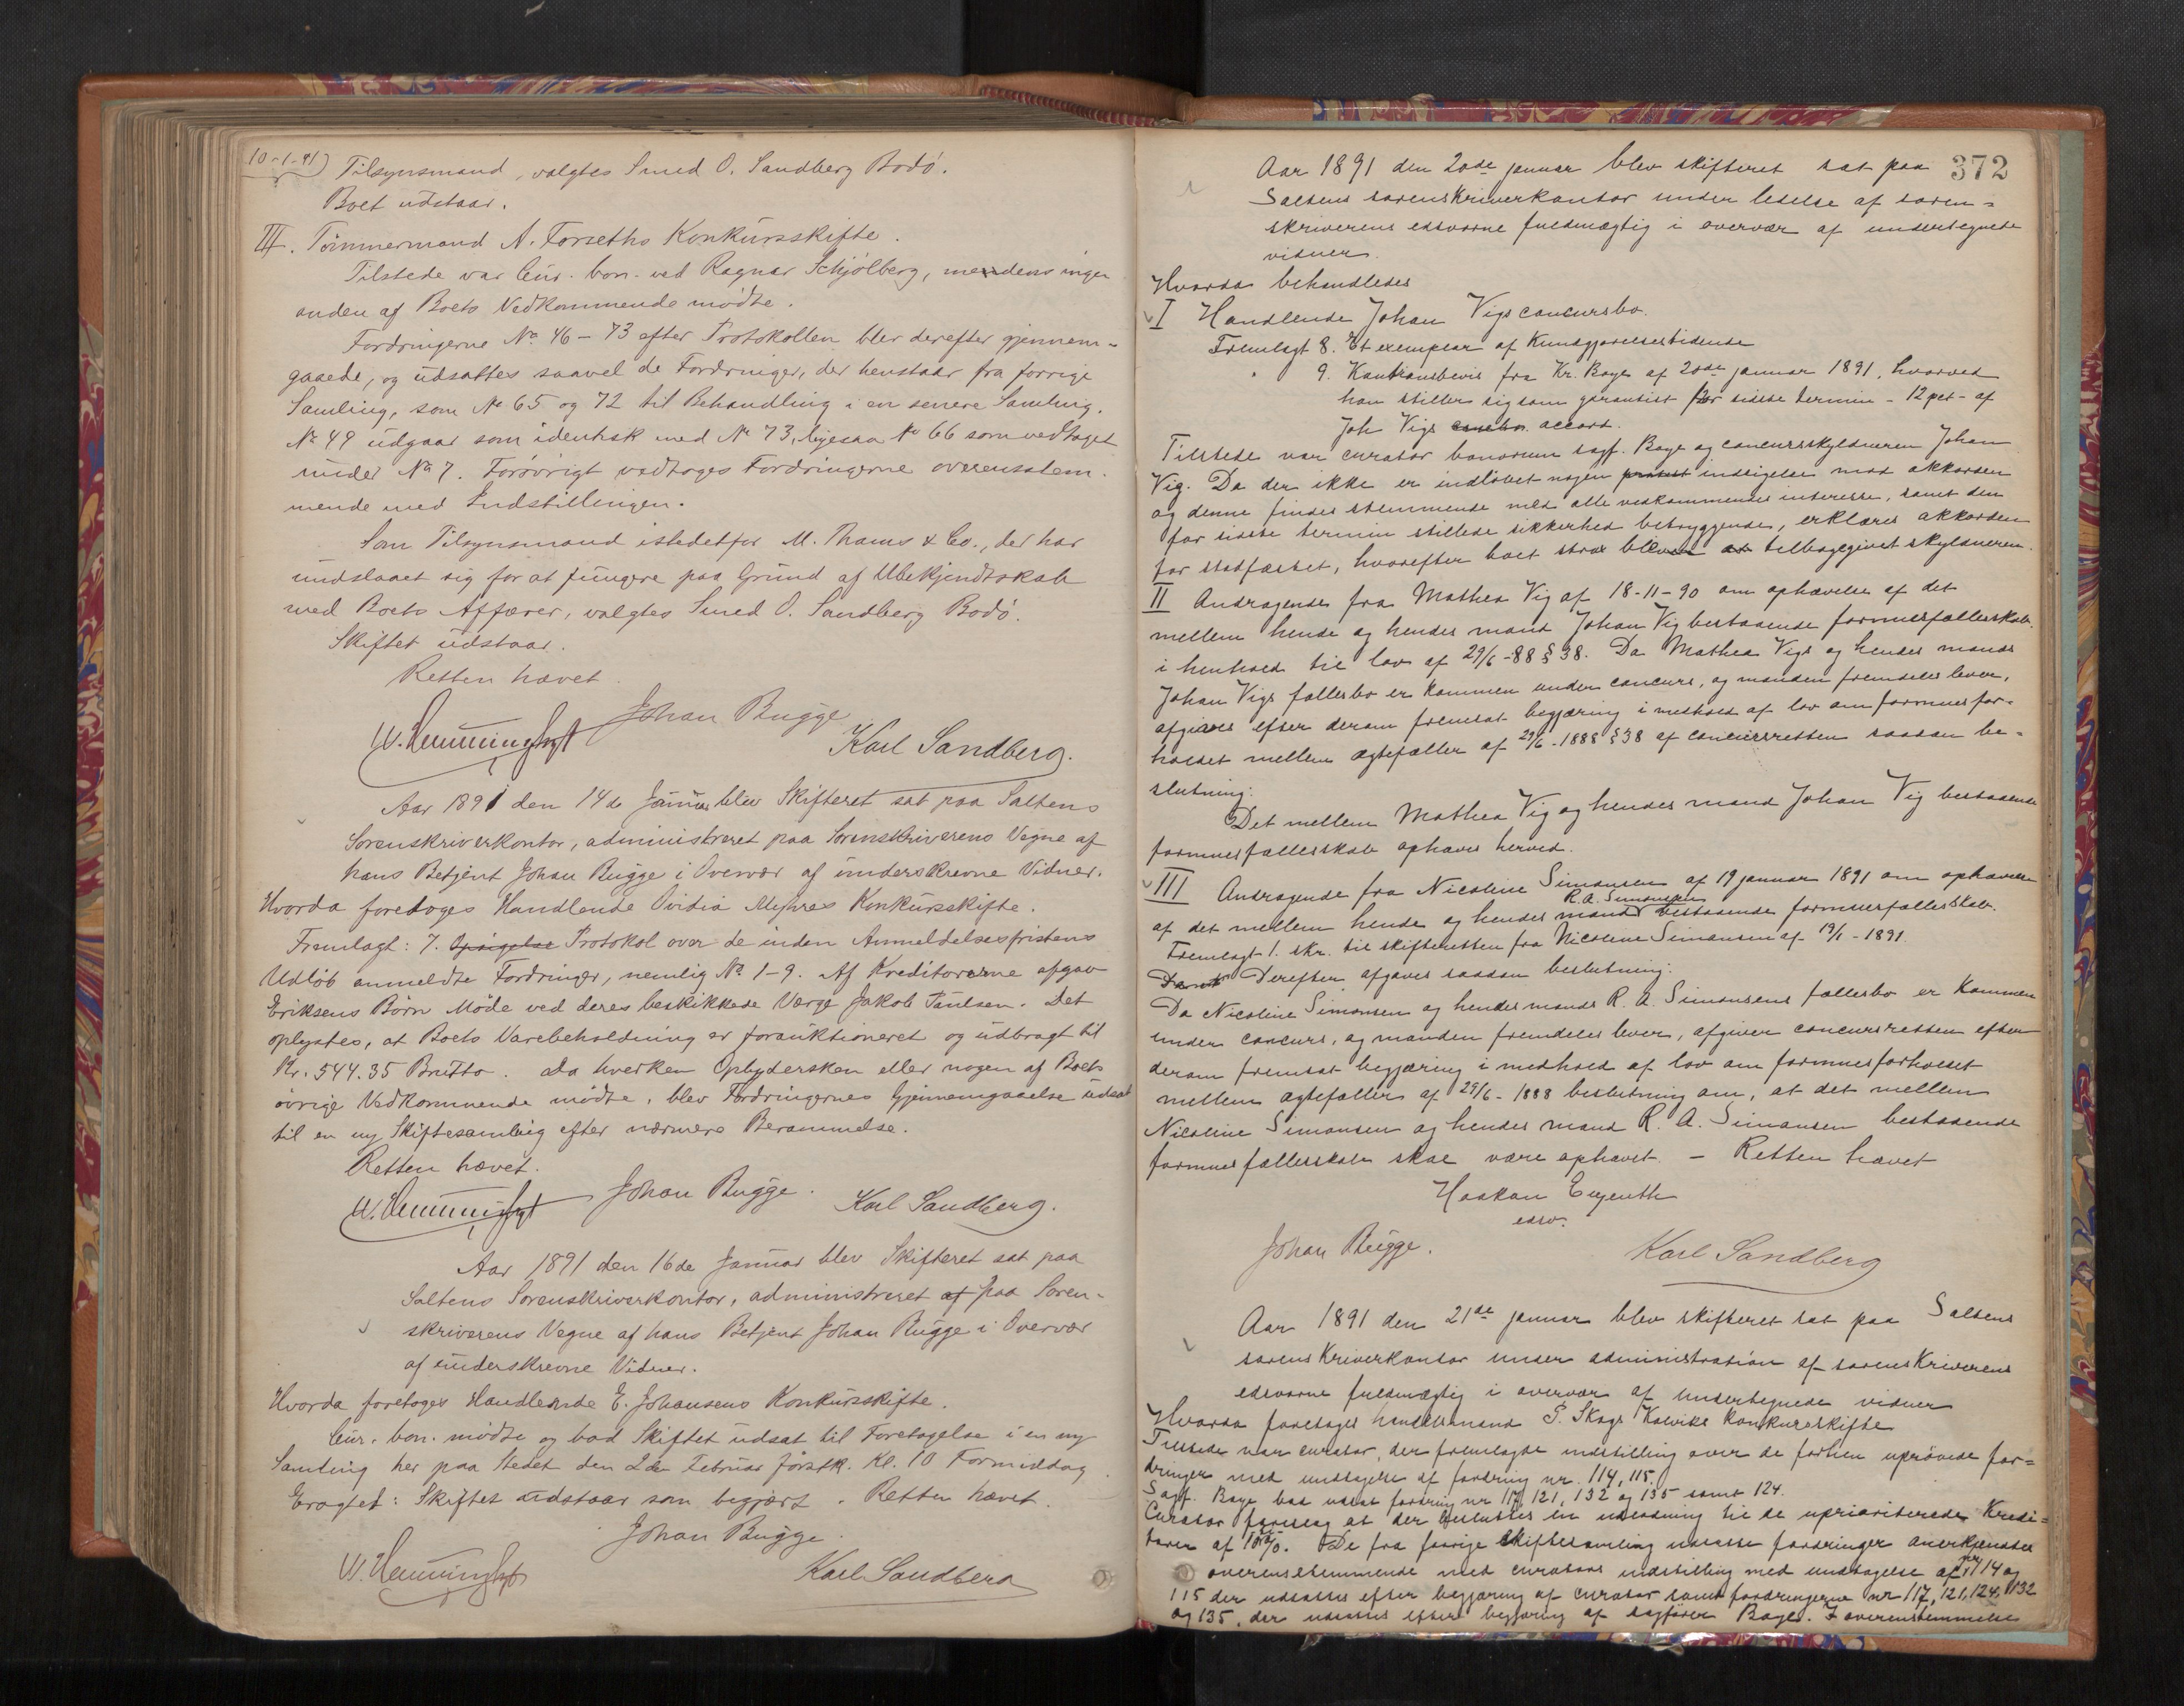 10-1-91) Tilsynsmand, valgtes Smed O. Sandberg Bodö.
Boet udstaar.
III. Tömmermand A. Forseths Konkursskifte.
Tilstede var Cur. bon. ved Ragnar Schjölberg, medens ingen
anden af Boets Vedkommende mødte.
Fordringerne No 46-73 efter Protokollen blev derefter gjennem-
gaaede, og udsattes saavel de Fordringer, der henstaar fra forrige
Samling, som No 65 og 72 til Behandling i en senere Samling.
No 49 udgaar som identisk med No 73, ligesaa No 66 som vedtaget
under No 7. Forövrigt vedtoges Fordringerne overensstem-
mende med Indstillingen.
Som Tilsynsmand istedetfor M. Thams & Co., der har
undslaaet sig for at fungere paa Grund af Ubekjendtskab
med Boets Affærer, valgtes Smed O. Sandberg Bodö.
Skiftet udstaar.
Retten hævet.
Johan Bugge
Karl Sandberg.
Aar 1891 den 14de Januar blev Skifteret sat paa Saltens
Sorenskriverkontor, administreret paa Sorenskriverens Vegne af
hans Betjent Johan Bugge i Overvær af underskrevne Vidner.
Hvorda foretoges Handlende Ovidia Konkursskifte.
Fremlagt: 7. Protokol over de inden Anmeldelsesfristens
Udlöb anmeldte Fordringer, nemlig No 1-9. Af Kreditorerne afgav
Eriksens Börn Møde ved deres beskikkede Værge Jakob Paulsen. Det
oplystes, at Boets Varebeholdning er forauktioneret og udbragt til
Kr. 544.35 Brutto. Da hverken Opbydersken eller nogen af Boets
övrige Vedkommende mødte, blev Fordringernes Gjennemgaaelse udsat
til en ny Skiftesamling efter nærmere Berammelse.
Retten hævet.
Johan Bugge.
Karl Sandberg.
Aar 1891 den 16de Januar blev Skifteret sat paa
Saltens Sorenskriverkontor, administreret af paa Soren-
skriverens Vegne af hans Betjent Johan Bugge i Overvær
af underskrevne Vidner.
Hvorda foretoges Handlende E. Johansens Konkursskifte.
Cur. bon. mødte og bad Skiftet udsat til Foretagelse i en ny
Samling her paa Stedet den 2den Februar förstk. Kl. 10 Formiddag.
Eragtet: Skiftet udstaar som begjært. Retten hævet.
Johan Bugge.
Karl Sandberg
372
Aar 1891 den 20de januar blev skifteret sat paa
Saltens sorenskriverkontor under ledelse af soren-
skriverens edsvorne fuldmægtig i overvær af undertegnede
vidner.
Hvorda behandledes
I Handlende Johan Vigs concursbo.
Fremlagt 8. Et exemplar af Kundgjørelsestidende
" 9. Kautionsbevis fra Kr. Boye af 20de januar 1891, hvorved
han stiller sig som garantist for sidste termin - 12 pct - af
Joh Vigs accord.
Tilstede var curator bonorum sagf. Boye og concursskyldneren Johan
Vig. Da der ikke er indløbet nogen protest indsigelse mod akkorden
og denne findes stemmende med alle vedkommendes interesse, samt den
for sidste termin stillede sikkerhed betryggende, erklæres akkorden
for stadfæstet, hvorefter boet strax blev tilbagegivet skyldneren.
II Andragende fra Mathea Vig af 18-11-90 om ophævelse af det
mellem hende og hendes mand Johan Vig bestaaende formuesfællesskab
i henhold til lov af 29/6-88 § 38. Da Mathea Vigs og hendes mands
Johan Vigs fællesbo er kommen under concurs, og manden fremdeles lever,
afgives efter derom fremsat begjæring i medhold af lov om formuesfor-
holdet mellem ægtefæller af 29/6-1888 § 38 af concursretten saadan be-
slutning:
Det mellem Mathea Vig og hendes mand Johan Vig bestaaende
formuesfællesskab ophæves herved.
III Andragende fra Nicoline Simonsen af 19 januar 1891 om ophævelse
R.A. Simonsen
af det mellem hende og hendes mand bestaaende formuesfællesskab.
Fremlagt 1. skr. til skifteretten fra Nicoline Simonsen af 19/1-1891.
Derefter afgaves saadan beslutning:
Da Nicoline Simonsen og hendes mands R. A. Simonsens fællesbo er kommen
under concurs, og manden fremdeles lever, afgiver concursretten efter
derom fremsat begjæring i medhold af lov om formuesforholdet
mellem ægtefæller af 29/6-1888 beslutning om, at det mellem
Nicoline Simonsen og hendes mand R. A. Simonsen bestaaende
formuesfællesskab skal være ophævet. - Retten hævet
edsv.
Johan Bugge.
Karl Sandberg
Aar 1891 den 21de januar blev skifteret sat paa Saltens
sorenskriverkontor under administration af sorenskriverens
edsvorne fuldmægtig i overvær af undertegnede vidner
Hvorda foretoges handelsmand P. Skogs Kalviks konkursskifte
Tilstede var curator, der fremlagde indstilling over de forhen uprøvede for-
dringer med undtagelse af fordring nr. 114, 115.
Sagf. Boye bad udsat fordring nr 117, 121, 132 og 135 samt 124.
Curator foreslog at der besluttes en udlodning til de uprioriterede kredi-
torer af 10 %. De fra forrige skiftesamling udsatte fordringer anerkjendtes
overensstemmende med curators indstilling med undtagelse af nr 114 og
115 der udsattes efter begjæring af curator samt fordringerne nr 117, 121, 124, 132
og 135, der udsattes efter begjæring af sagfører Boye. I overensstemmelse